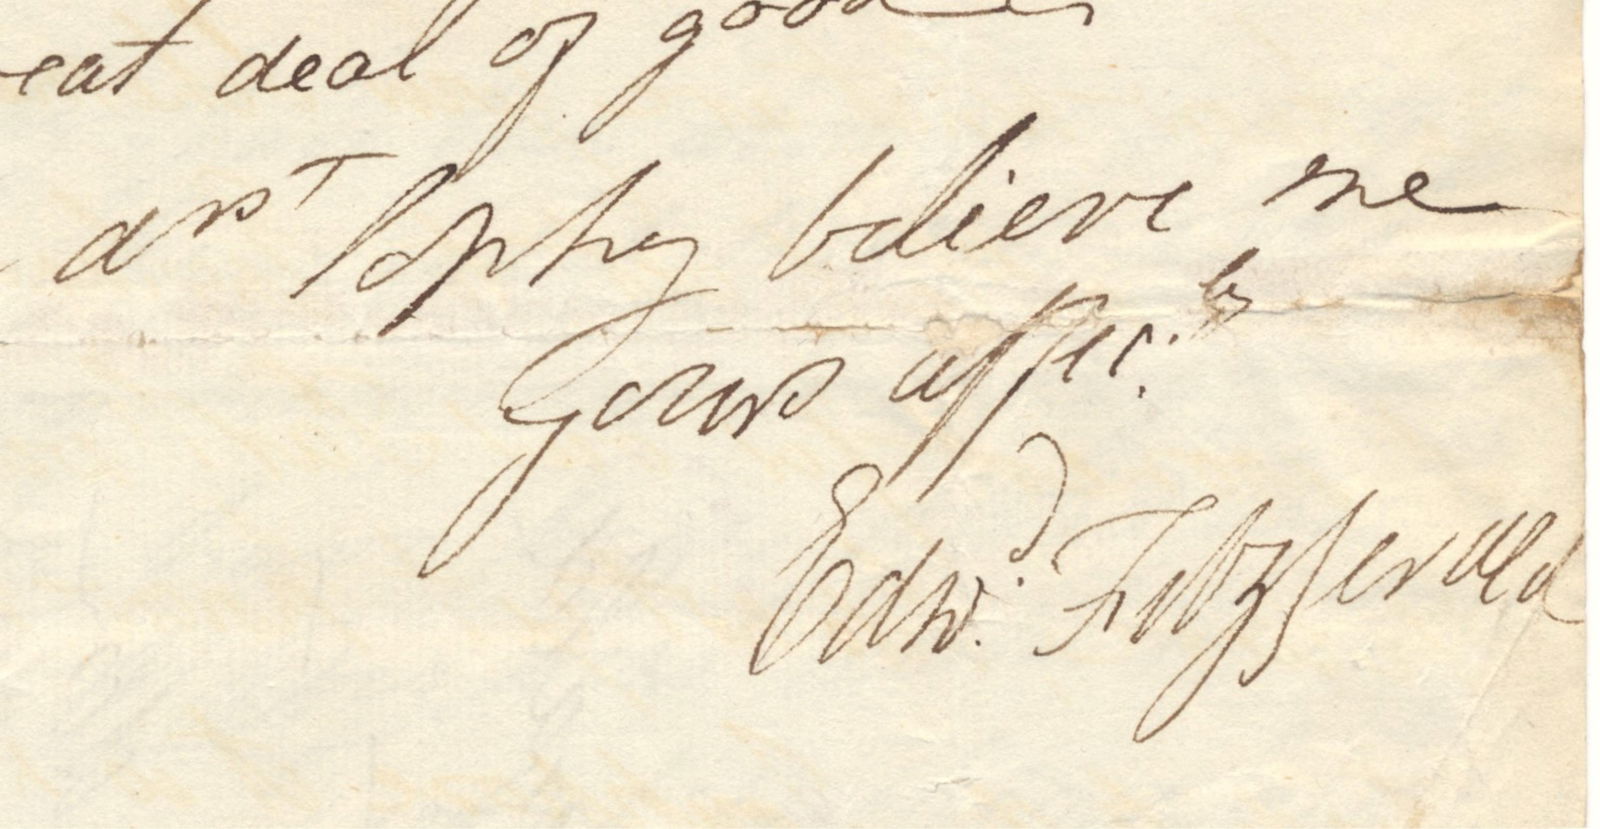 eat deal of good
drsT Sophy believe me
yours affec.ly
Edwd. Fitzgerald